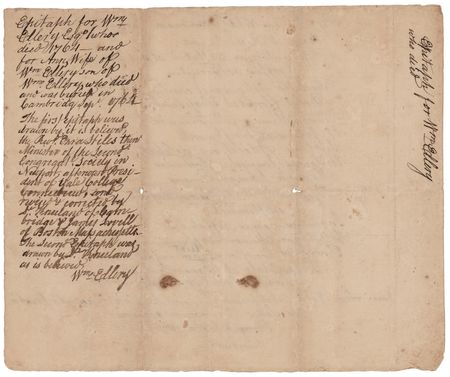 Epitaph for Wm
Ellery Esqr who
died 1764 — and
for Ann Wife of
Wm Ellery son of
Wm Ellery, who died
and was buried in
Cambridge Sepr. 1764
The first Epitaph was
drawn by it is believed
the Revd Ezra Stiles then
Minister of the Second
Congregl. Society in
Newport, afterwards Presi-
dent of Yale College
Connecticut, and
revised & corrected by
Kneeland of Cam-
bridge & James Lovell
of Boston Massachusetts.
The Second Epitaph was
drawn by Kneeland
as is believed
Wm Ellery
Epitaph for Wm Ellery
who died